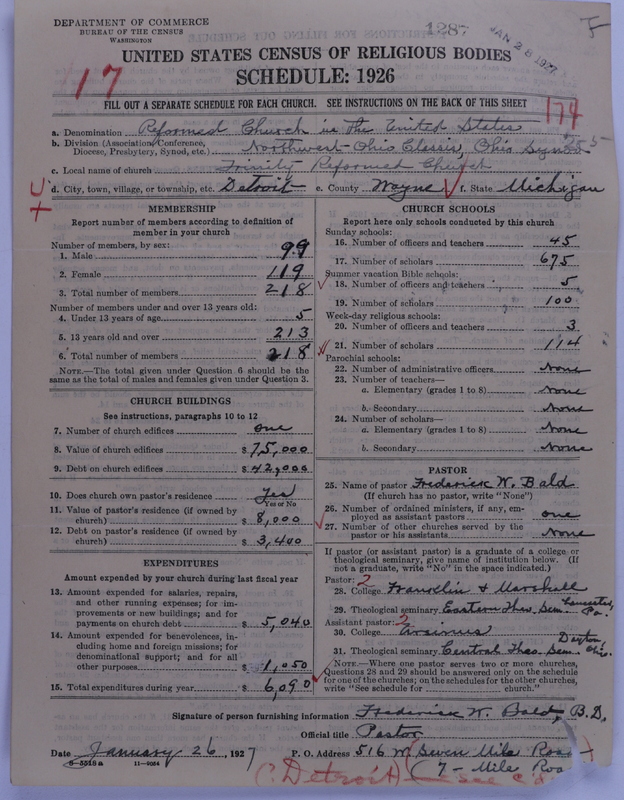 DEPARTMENT OF COMMERCE
BUREAU OF THE CENSUS
WASHINGTON
1287
JAN 28 1927
UNITED STATES CENSUS OF RELIGIOUS BODIES
SCHEDULE: 1926
17
FILL OUT A SEPARATE SCHEDULE FOR EACH CHURCH. SEE INSTRUCTIONS ON THE BACK OF THIS SHEET
174
a. Denomination Reformed Church in the United States
b. Division (Association, Conference, Diocese, Presbytery, Synod, etc.) Northwest-Ohio Classis, Ohio Synod
c. Local name of church Trinity Reformed Church
d. City, town, village, or township, etc. Detroit e. County Wayne f. State Michigan
MEMBERSHIP
Report number of members according to definition of
member in your church
Number of members, by sex:
1. Male 99
2. Female 119
3. Total number of members 218
Number of members under and over 13 years old:
4. Under 13 years of age 5
5. 13 years old and over 213
6. Total number of members 218
NOTE.—The total given under Question 6 should be
same as the total of males and females given under Question 3.
CHURCH BUILDINGS
See instructions, paragraphs 10 to 12
7. Number of church edifices one
8. Value of church edifices $75,000
9. Debt on church edifices $42,000
10. Does church own pastor's residence Yes
Yes or No
11. Value of pastor's residence (if owned by
church) $8,000
12. Debt on pastor's residence (if owned by
church) $3,400
EXPENDITURES
Amount expended by your church during last fiscal year
13. Amount expended for salaries, repairs,
and other running expenses; for im-
provements or new buildings; and for
payments on church debt $5,040
14. Amount expended for benevolences, in-
cluding home and foreign missions; for
denominational support; and for all
other purposes $1,050
15. Total expenditures during year $6,090
CHURCH SCHOOLS
Report here only schools conducted by this church
Sunday schools:
16. Number of officers and teachers 45
17. Number of scholars 675
Summer vacation Bible schools:
18. Number of officers and teachers 5
19. Number of scholars 100
Week-day religious schools:
20. Number of officers and teachers 3
21. Number of scholars 114
Parochial schools:
22. Number of administrative officers None
23. Number of teachers—
a. Elementary (grades 1 to 8) None
b. Secondary None
24. Number of scholars—
a. Elementary (grades 1 to 8) None
b. Secondary None
PASTOR
25. Name of pastor Frederick W. Bald
(If church has no pastor, write "None")
26. Number of ordained ministers, if any, em-
ployed as assistant pastors one
27. Number of other churches served by the
pastor or his assistants None
If pastor (or assistant pastor) is a graduate of a college or
theological seminary, give name of institution below. (If
not a graduate, write "No" in the space indicated.)
Pastor: 2
28. College Franklin & Marshall
29. Theological seminary Eastern Theo. Sem. Lancaster, Pa.
Assistant pastor: 2
30. College Ursinus
31. Theological seminary Central Theo. Sem. Dayton Ohio.
NOTE.—Where one pastor serves two or more churches,
Questions 28 and 29 should be answered only on the schedule
for one of the churches; on the schedules for the other churches,
write "See schedule for church."
Signature of person furnishing information Frederick W. Bald, B.D.
Official title Pastor
Date January 26, 1927 P. O. Address 516 W Seven Mile Road
8-5518a 11-9084
(7-Mile Road
(Detroit)